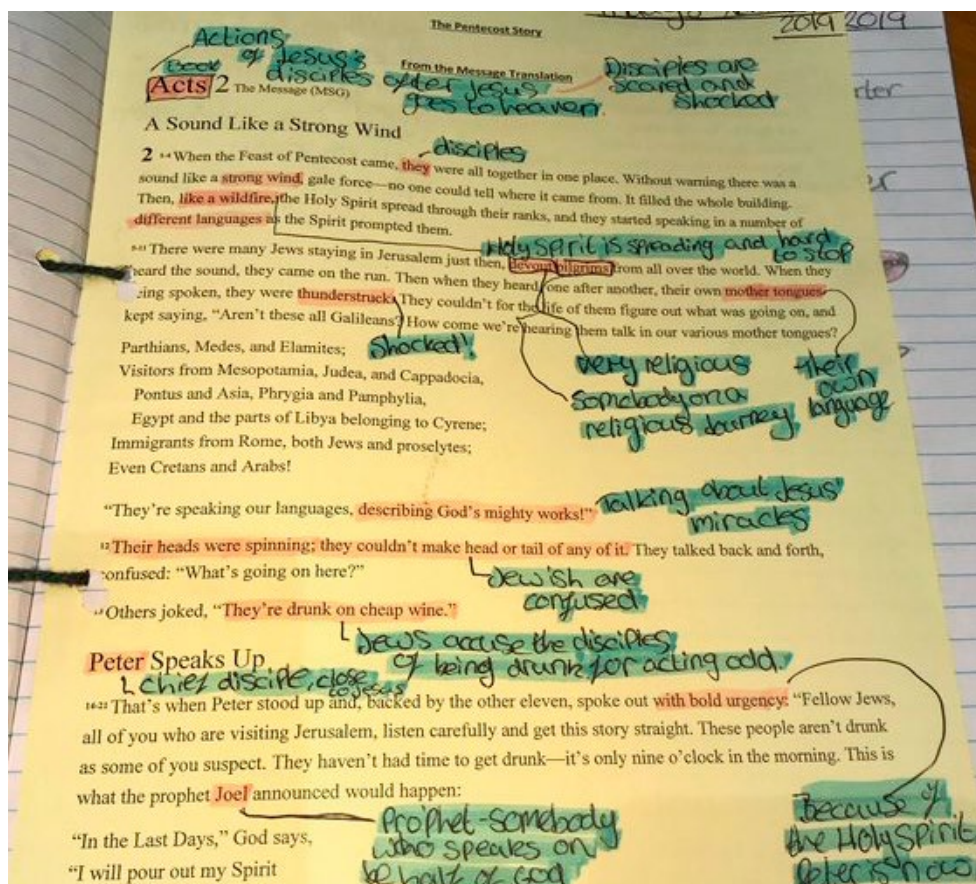 The Pentecost Story
2019 2019
From the Message Translation
Actions
of Jesus's
disciples after Jesus
goes to heaven.
Book
Disciples are
scared and
shocked
Acts 2 The Message (MSG)
A Sound Like a Strong Wind
disciples
2 1-4 When the Feast of Pentecost came, they were all together in one place. Without warning there was a
sound like a strong wind, gale force—no one could tell where it came from. It filled the whole building.
Then, like a wildfire, the Holy Spirit spread through their ranks, and they started speaking in a number of
different languages as the Spirit prompted them.
Holy spirit is spreading and hard
to stop
5-11 There were many Jews staying in Jerusalem just then, devout pilgrims from all over the world. When they
heard the sound, they came on the run. Then when they heard, one after another, their own mother tongues
being spoken, they were thunderstruck. They couldn't for the life of them figure out what was going on, and
kept saying, "Aren't these all Galileans? How come we're hearing them talk in our various mother tongues?
Shocked!
very religious
somebody on a
religious Journey
their
own
language
Parthians, Medes, and Elamites;
Visitors from Mesopotamia, Judea, and Cappadocia,
Pontus and Asia, Phrygia and Pamphylia,
Egypt and the parts of Libya belonging to Cyrene;
Immigrants from Rome, both Jews and proselytes;
Even Cretans and Arabs!
"They're speaking our languages, describing God's mighty works!"
Talking about Jesus'
miracles
12 Their heads were spinning; they couldn't make head or tail of any of it. They talked back and forth,
confused: "What's going on here?"
Jewish are
confused
Others joked, "They're drunk on cheap wine."
Jews accuse the disciples
of being drunk for acting odd.
Peter Speaks Up
chief disciple, close
to Jesus
14-21 That's when Peter stood up and, backed by the other eleven, spoke out with bold urgency: "Fellow Jews,
all of you who are visiting Jerusalem, listen carefully and get this story straight. These people aren't drunk
as some of you suspect. They haven't had time to get drunk—it's only nine o'clock in the morning. This is
what the prophet Joel announced would happen:
Prophet-somebody
who speaks on
behalf of God
Because of
the Holy Spirit
Peter is now
"In the Last Days," God says,
"I will pour out my Spirit